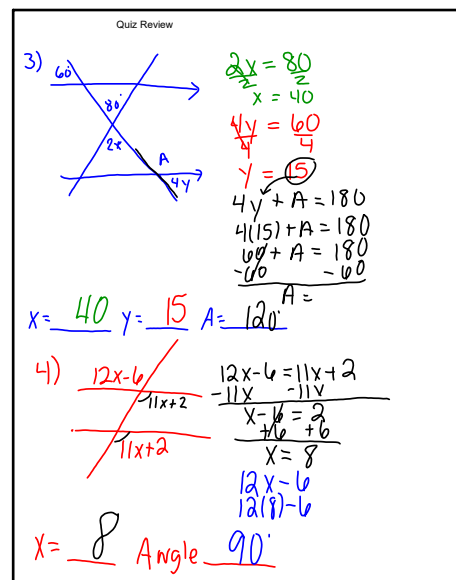 Quiz Review
3)
60°
80°
2x
A
4y
2x = 80
2 2
x = 40
4y = 60
4 4
y = 15
4y + A = 180
4(15) + A = 180
60 + A = 180
-60 -60
A =
x = 40 y = 15 A = 120°
4)
12x-6
11x+2
11x+2
12x-6 = 11x+2
-11x -11x
x-6 = 2
+6 +6
x = 8
12x-6
12(8)-6
x = 8 Angle 90°